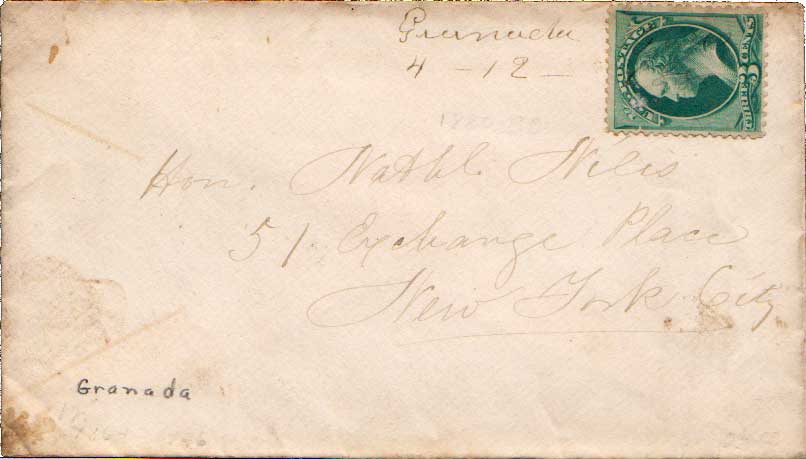 Granada
4 - 12 -
U.S. POSTAGE
3
Hon. Nathl. Niles
51 Exchange Place
New York City
Granada